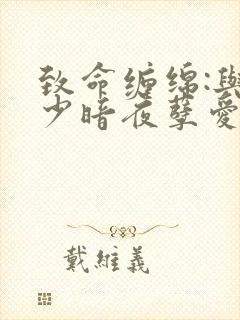 致命缠绵:與
少暗夜孽愛
戴維義